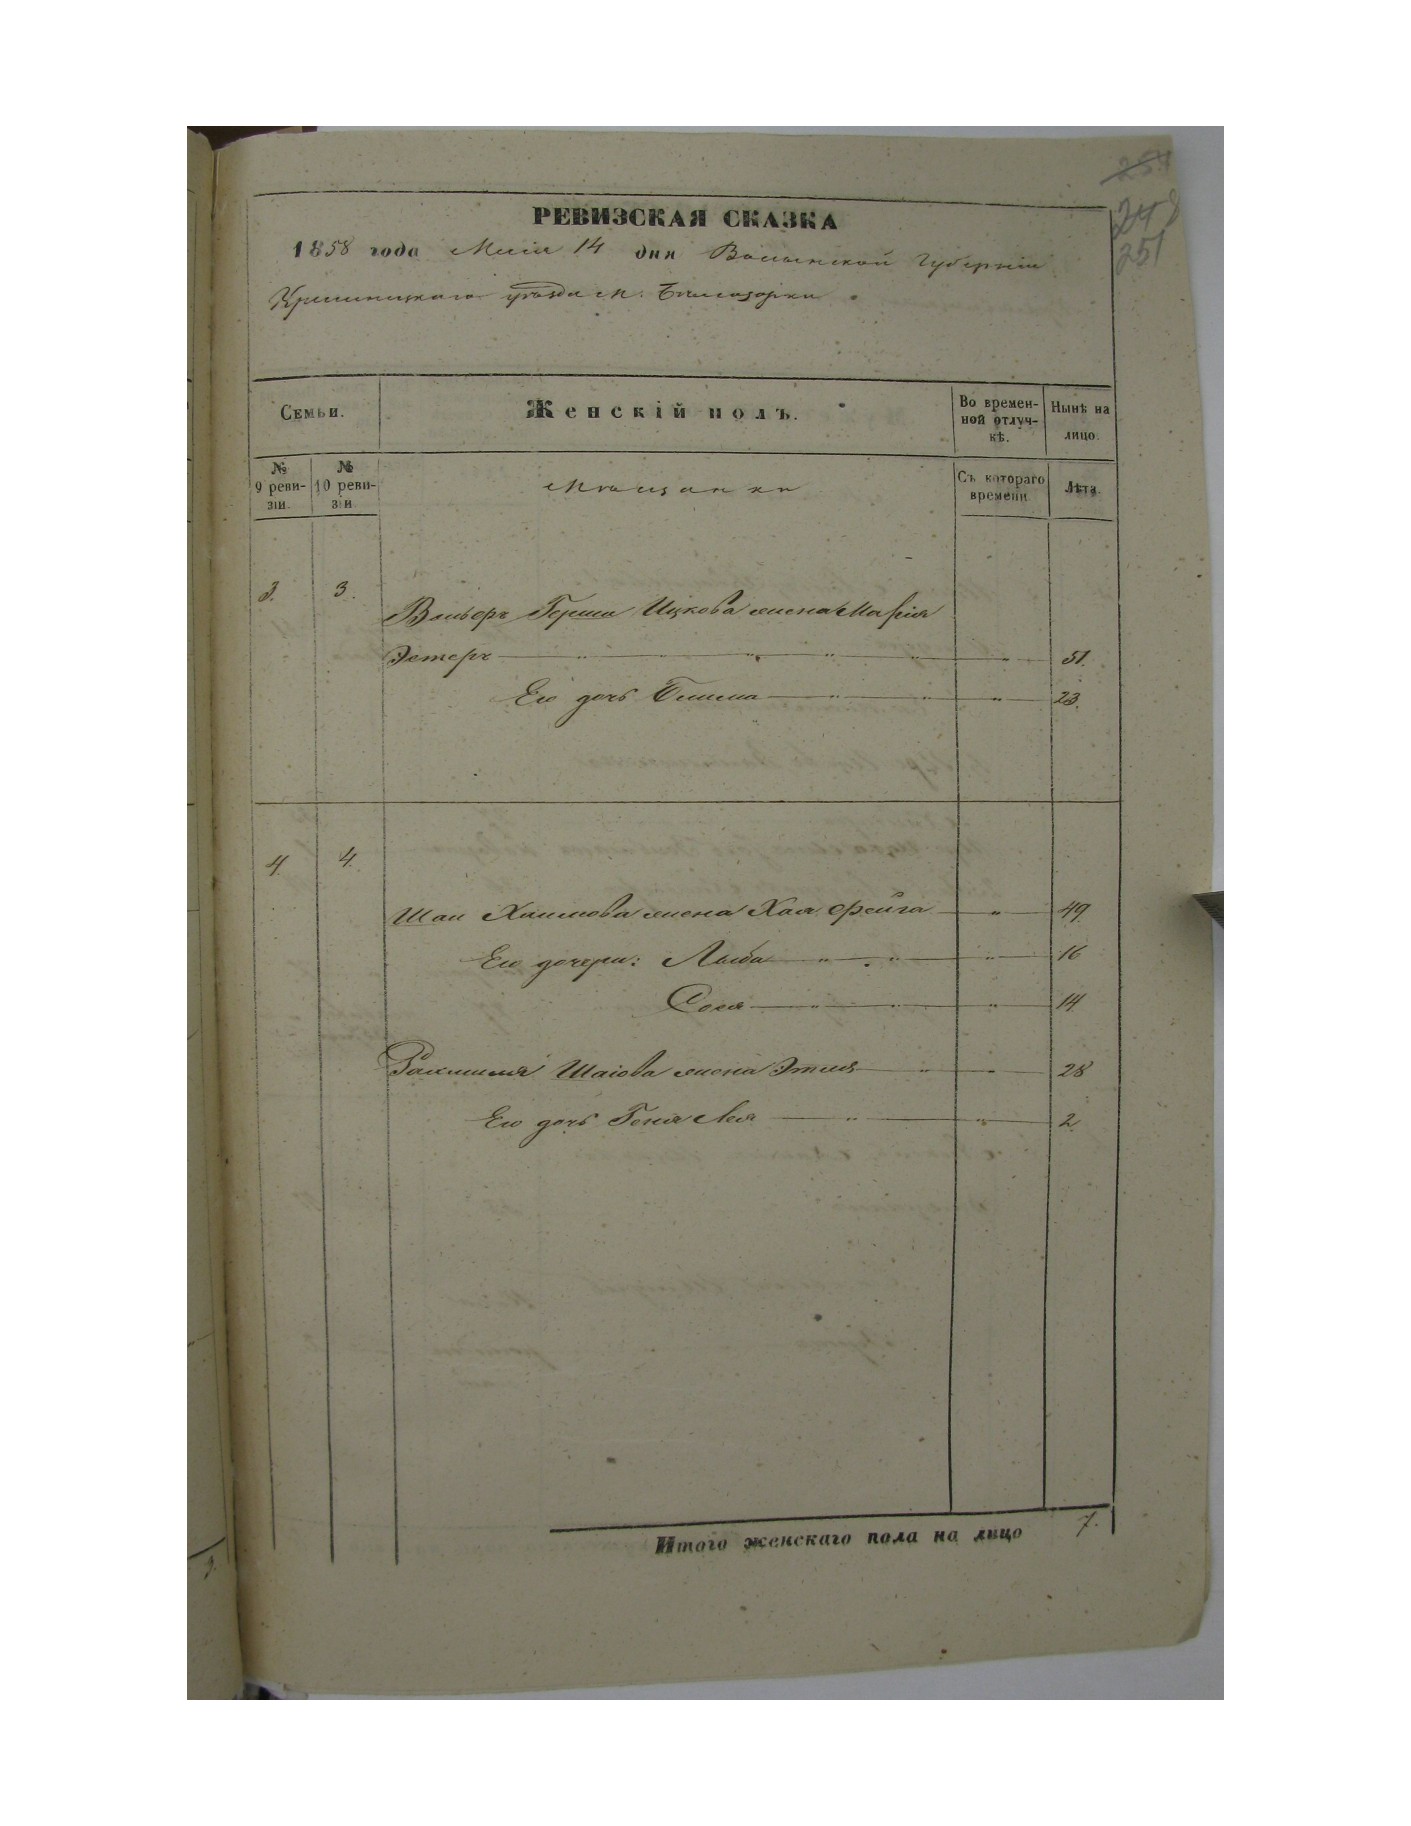 254
248
251
РЕВИЗСКАЯ СКАЗКА
1858 года Маія 14 дня Волынской Губерніи
Кременецкаго уѣзда м. Бѣлозорки
Семьи.
Женскій полъ.
Во времен-
ной отлуч-
кѣ.
Нынѣ на
лицо.
№
9 реви-
зіи.
№
10 реви-
зіи
Мѣщанки
Съ котораго
времени
Лѣта.
3. 3.
Вольфъ Герша Ицкова жена Марія
Эстеръ 51.
Его дочь 23.
4. 4.
Шаи Хаимова жена Хая Фейга 49
Его дочери: Люба 16
Сося 14
Рахмиля Шаіова жена Этля 28
Его дочь Геня Лея 2
Итого женскаго пола на лицо 7.